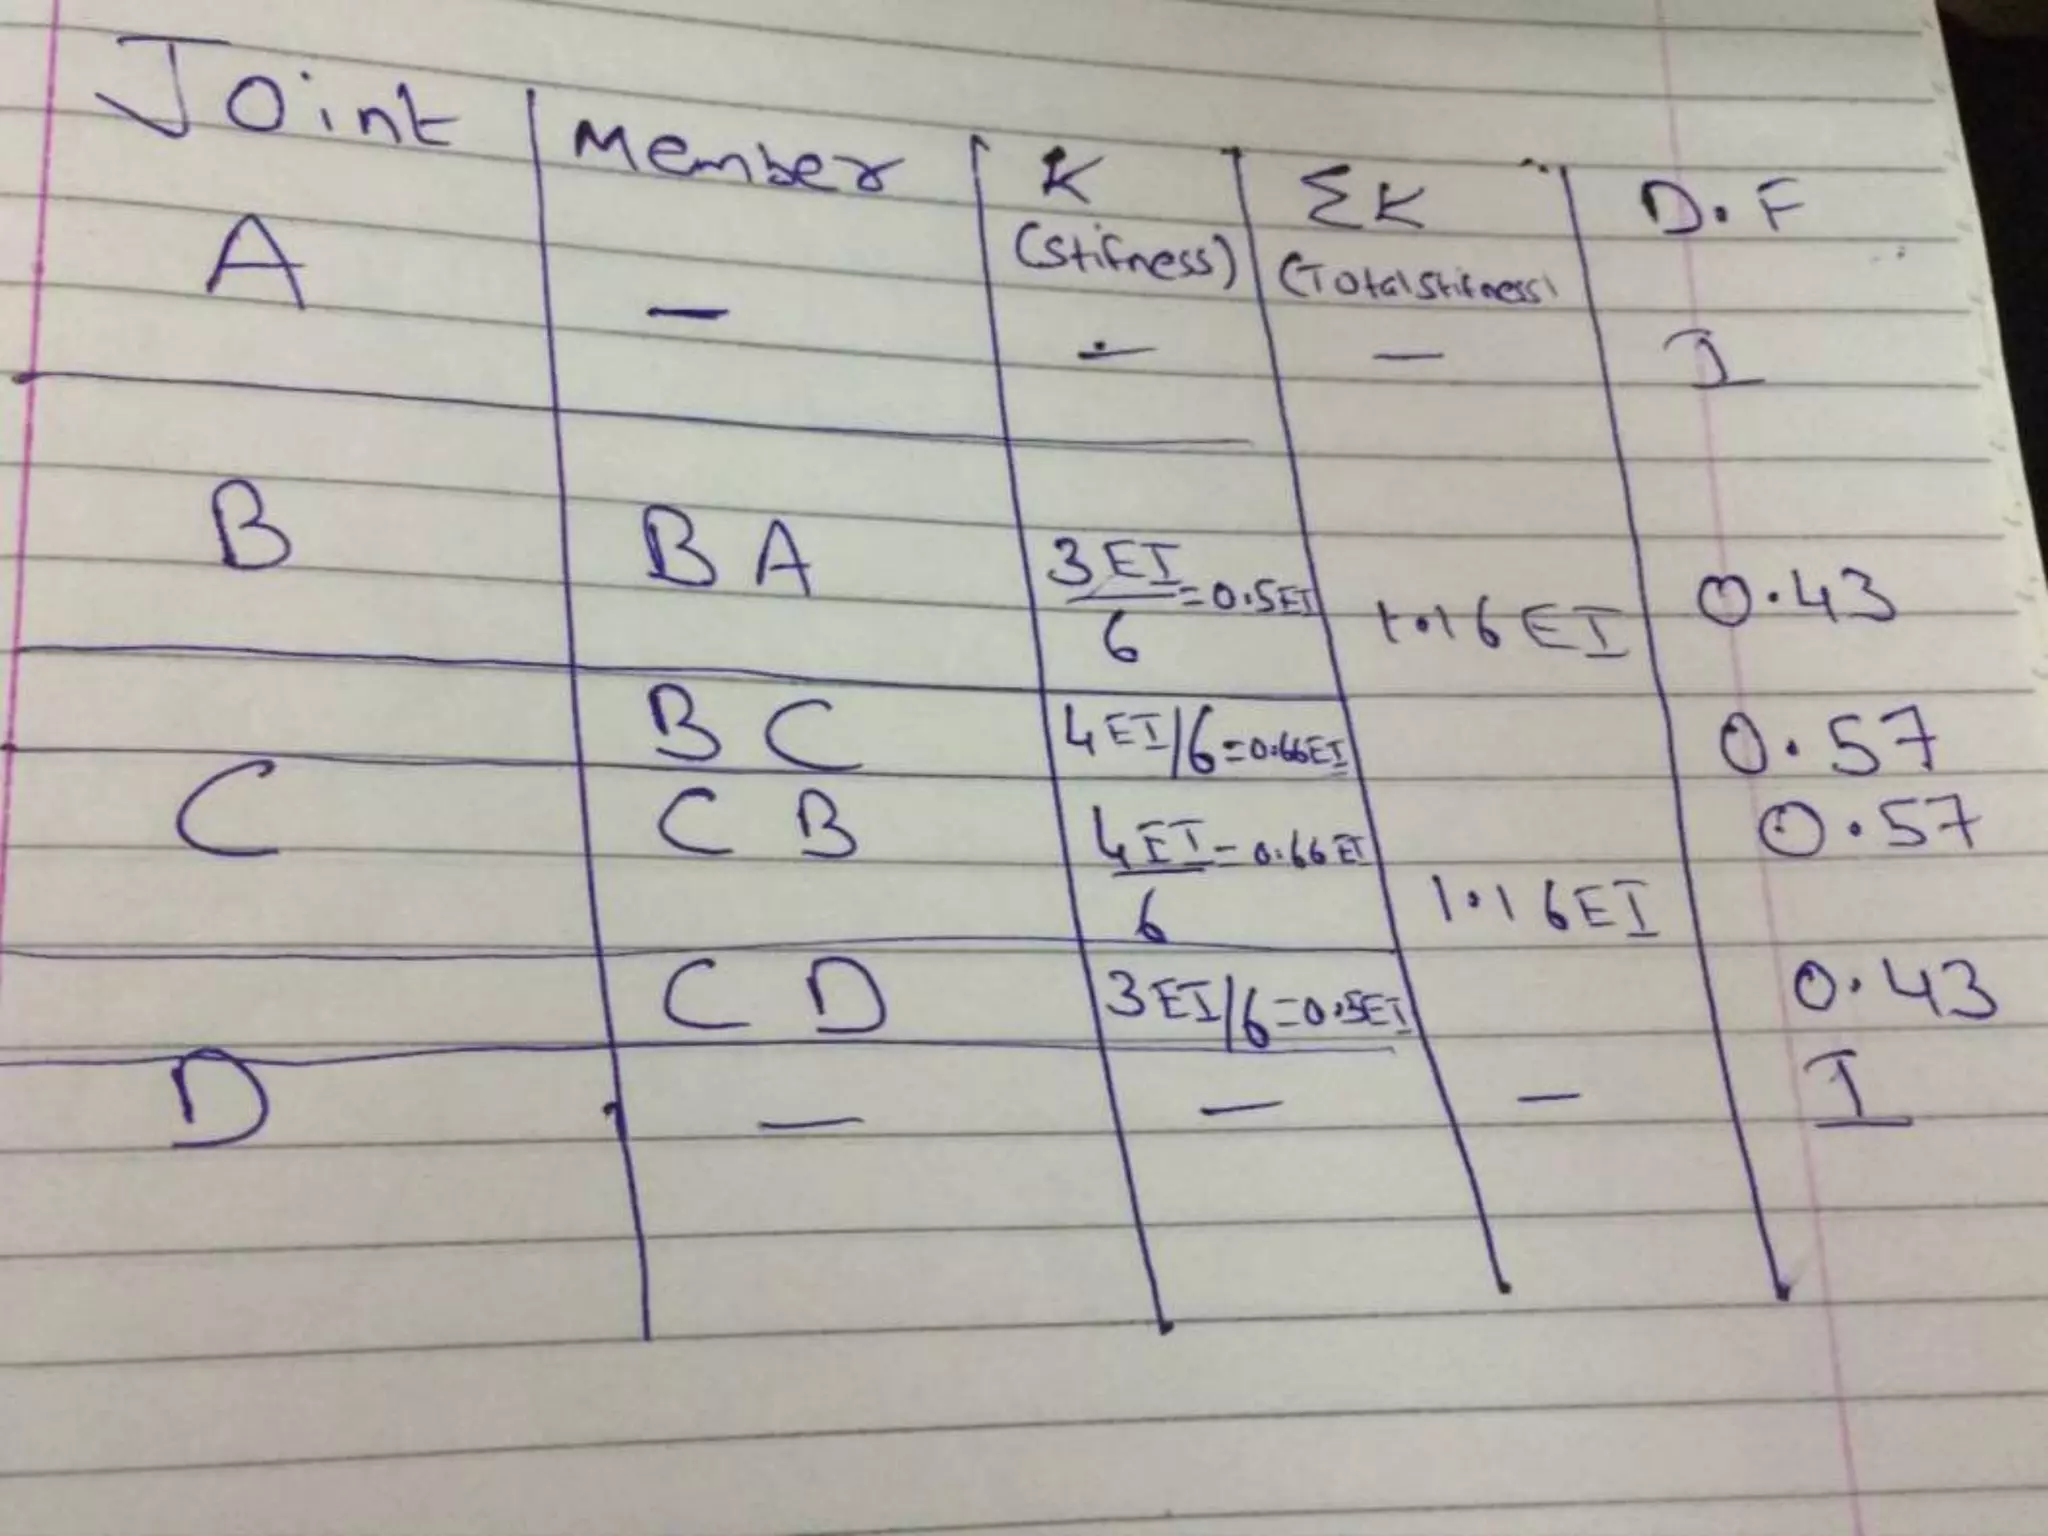 Joint Member K ΣK D.F
(Stifness) (Total Stifness)
A — — — 1
B BA 3EI/6 = 0.5EI 1.16EI 0.43
BC 4EI/6 = 0.66EI 0.57
C CB 4EI/6 = 0.66EI 1.16EI 0.57
CD 3EI/6 = 0.5EI 0.43
D — — — 1